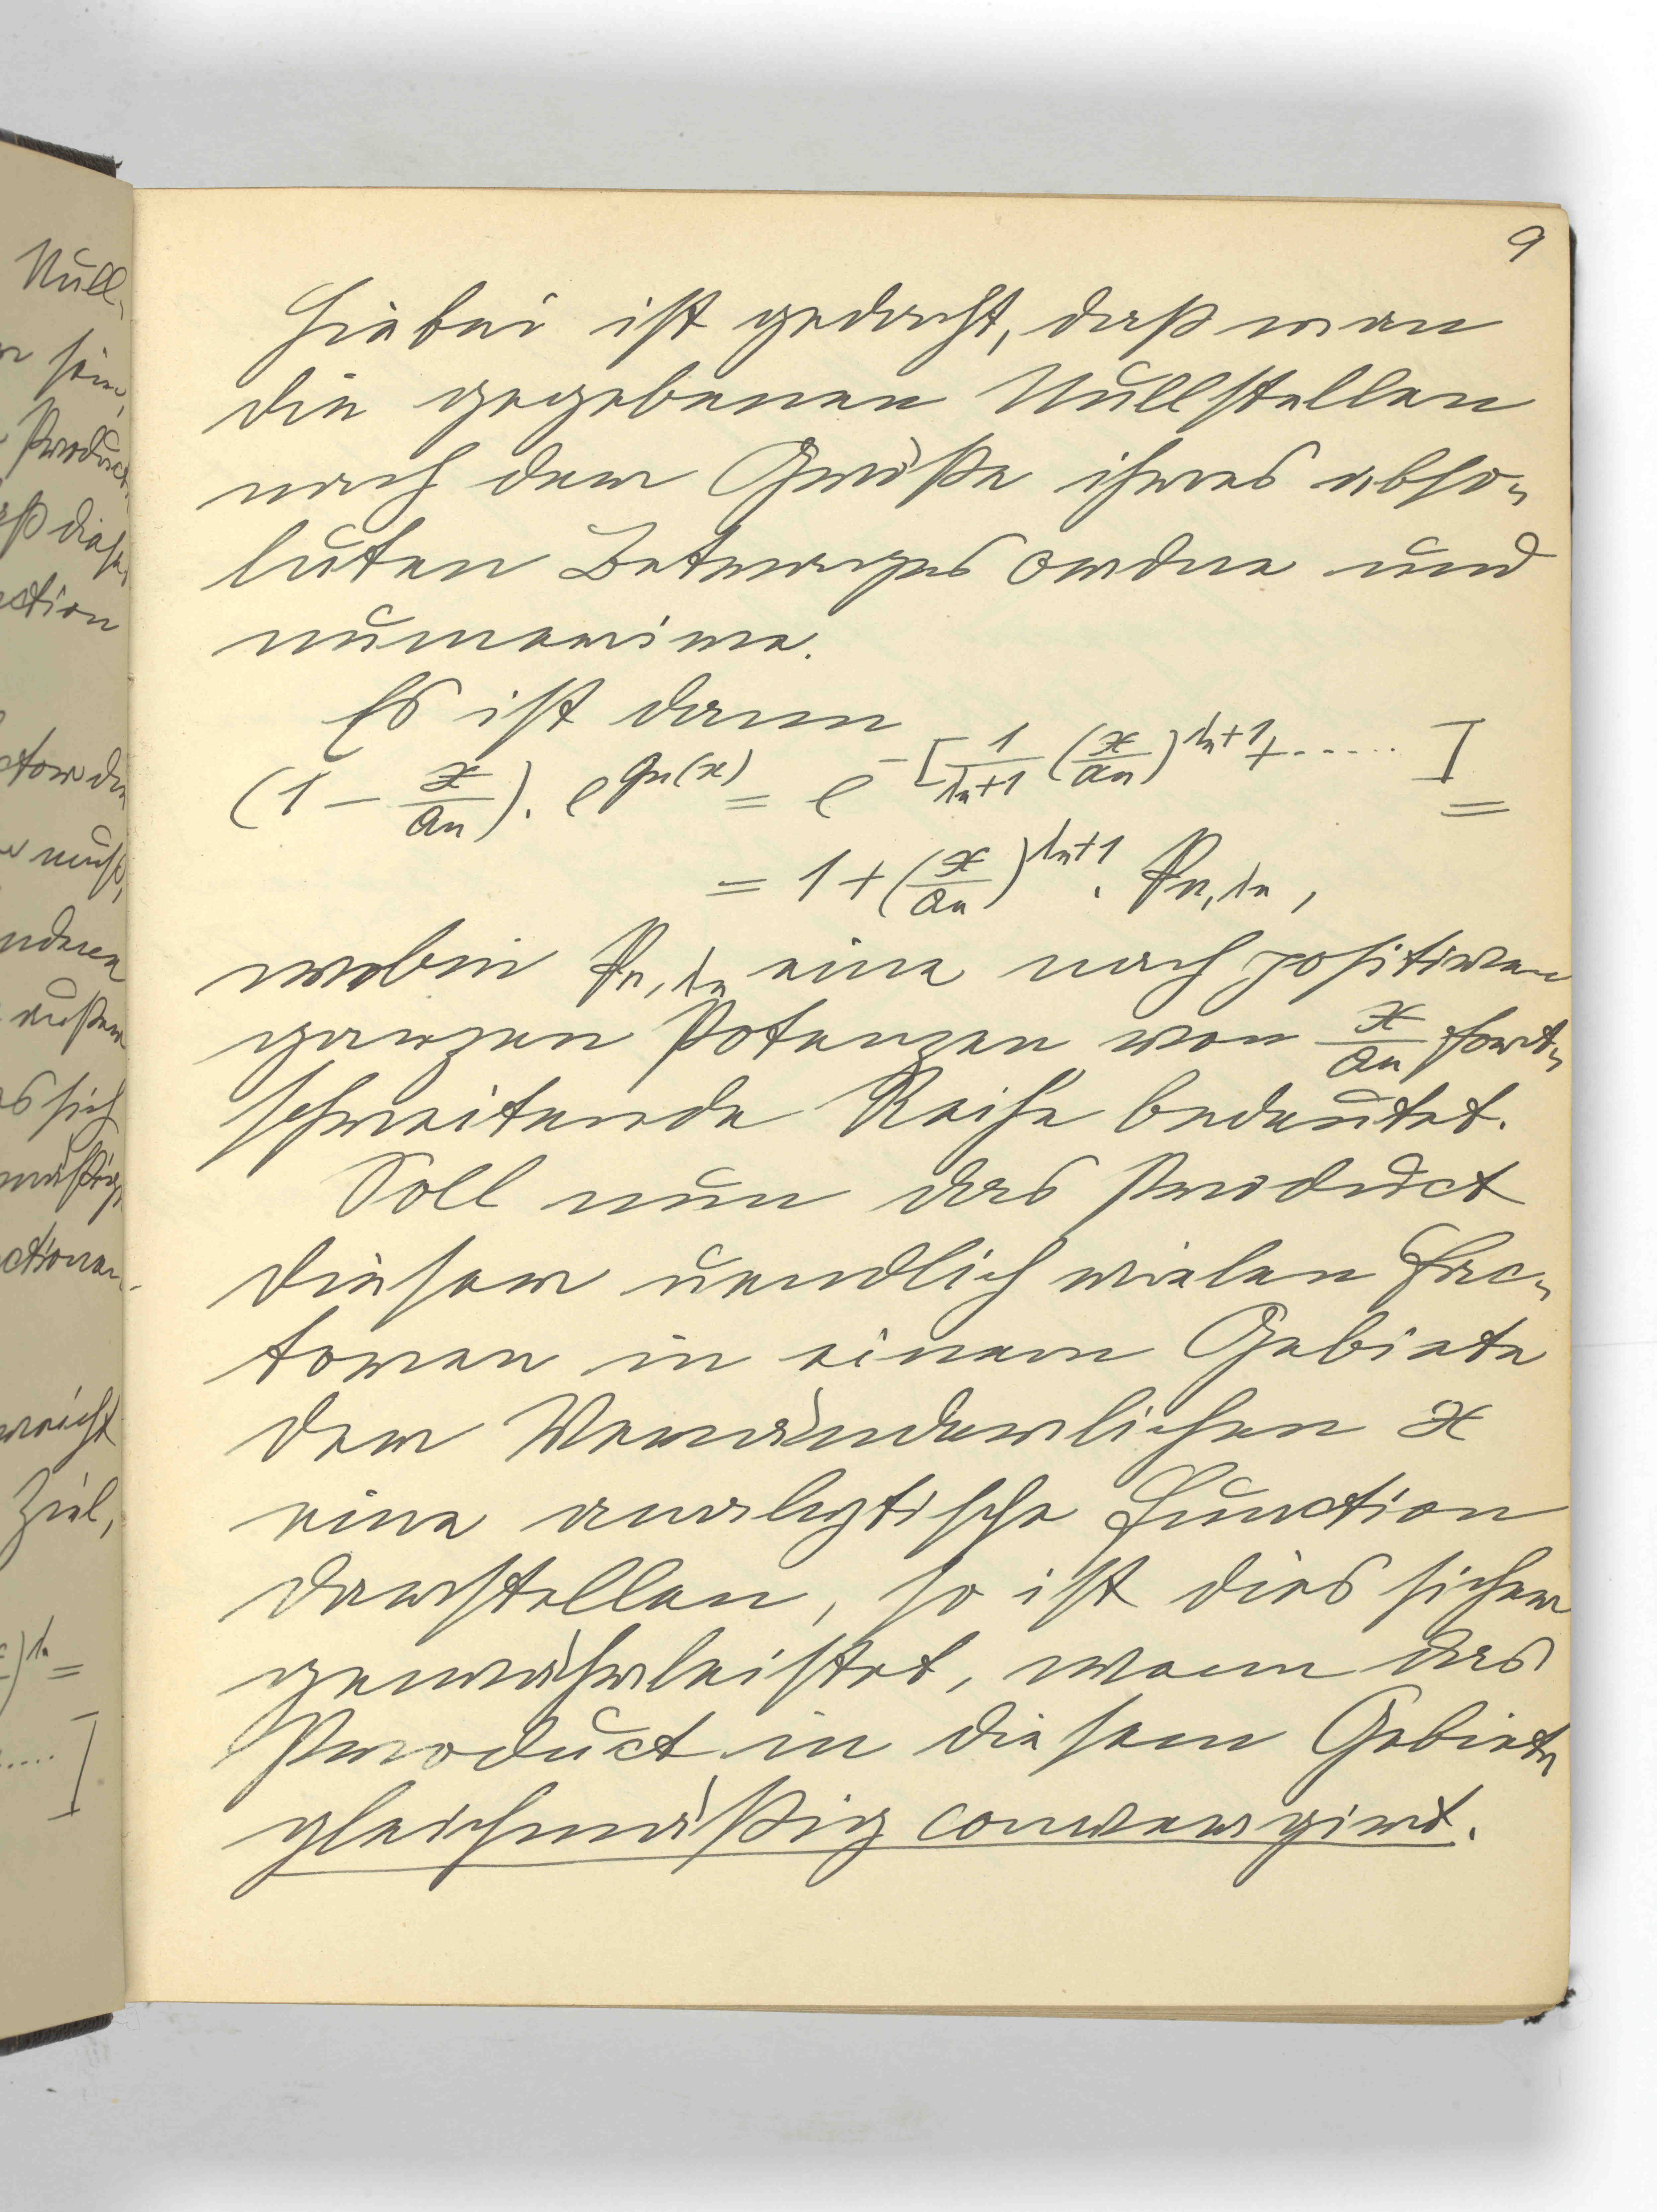 9
Hiebei ist gedacht, daß man
die gegebenen Nullstellen
nach der Größe ihres abso-
luten Betrages ordne und
numerire.
Es ist dann
(1 - x/aₙ) · e^{gₙ(x)} = e^{-[1/(λₙ+1) (x/aₙ)^{λₙ+1} + ......]} =
= 1 + (x/aₙ)^{λₙ+1} · Pₙ,λₙ ,
wobei Pₙ,λₙ eine nach positiven
ganzen Potenzen von x/aₙ fort-
schreitende Reihe bedeutet.
Soll nun das Product
dieser unendlich vielen Fac-
toren in einem Gebiete
der Veränderlichen x
eine analytische Function
darstellen, so ist dies sicher
gewährleistet, wenn das
Product in diesem Gebiete
gleichmäßig convergirt.